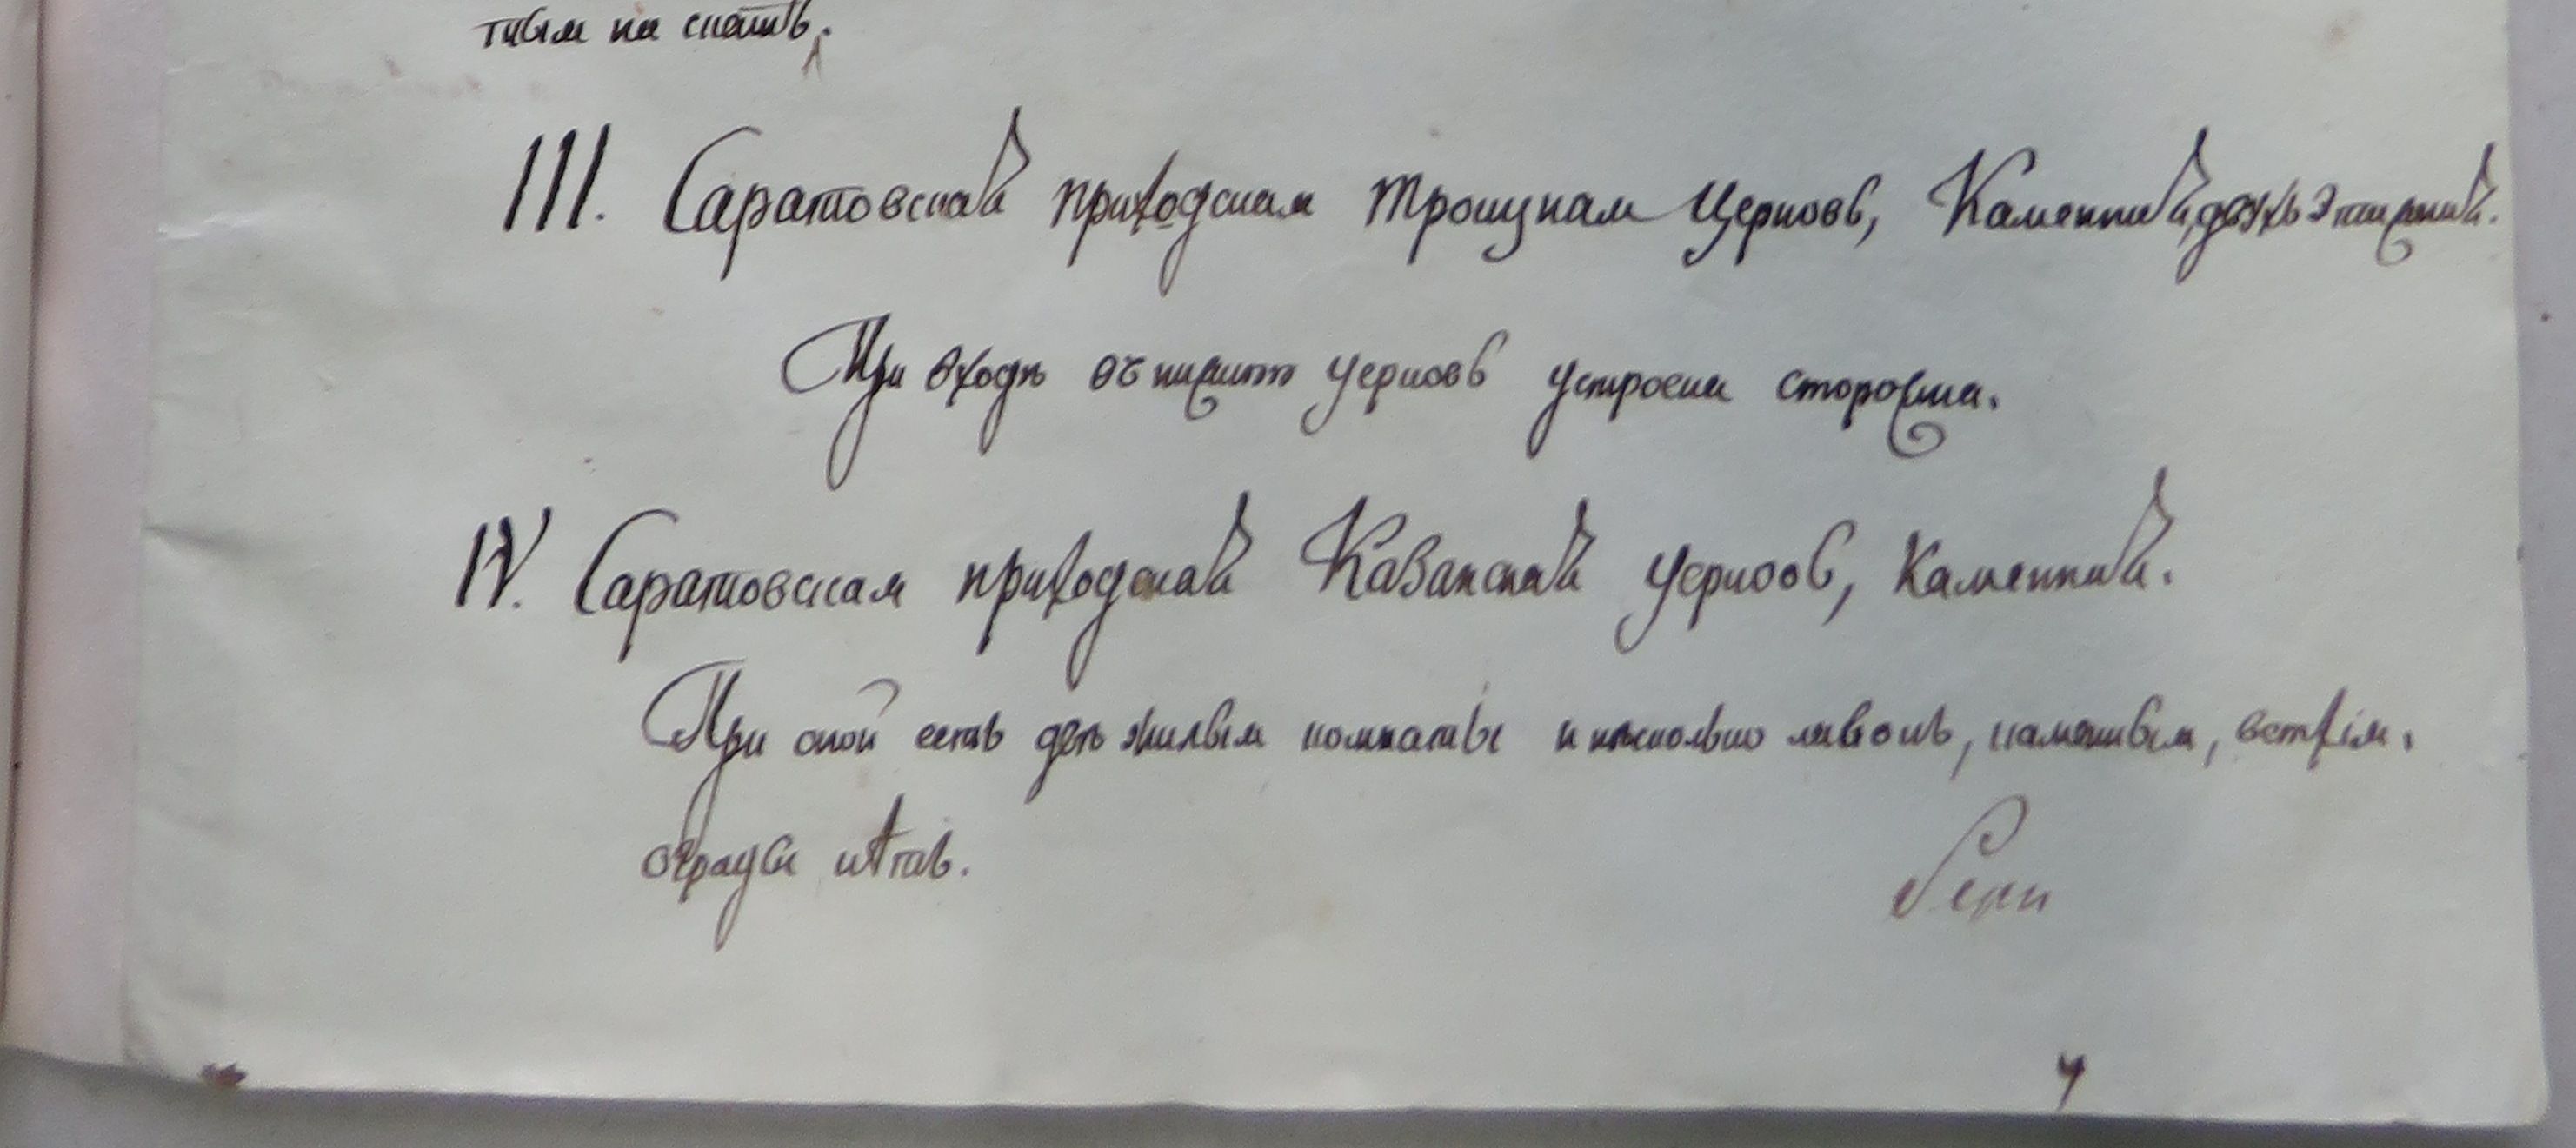 III. Саратовская приходская Троицкая Церковь, Каменная, двухъ этажная.
При входѣ въ нижнюю церковь устроена сторожка.
IV. Саратовская приходская Казанская церковь, Каменная.
При оной есть двѣ жилыя комнаты и нѣсколько лавокъ, каменныя, ветхія.
ограды нѣтъ.